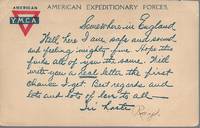 AMERICAN
Y.M.C.A
AMERICAN EXPEDITIONARY FORCES.
Somewhere in England.
Well here I am safe and sound
and feeling mighty fine. Hope this
finds all of you the same. Will
write you a real letter the first
chance I get. Best regards and
lots and lots of love to all
In haste